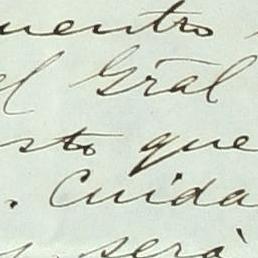 uentro
el Gral
sto que
. Cuida
será